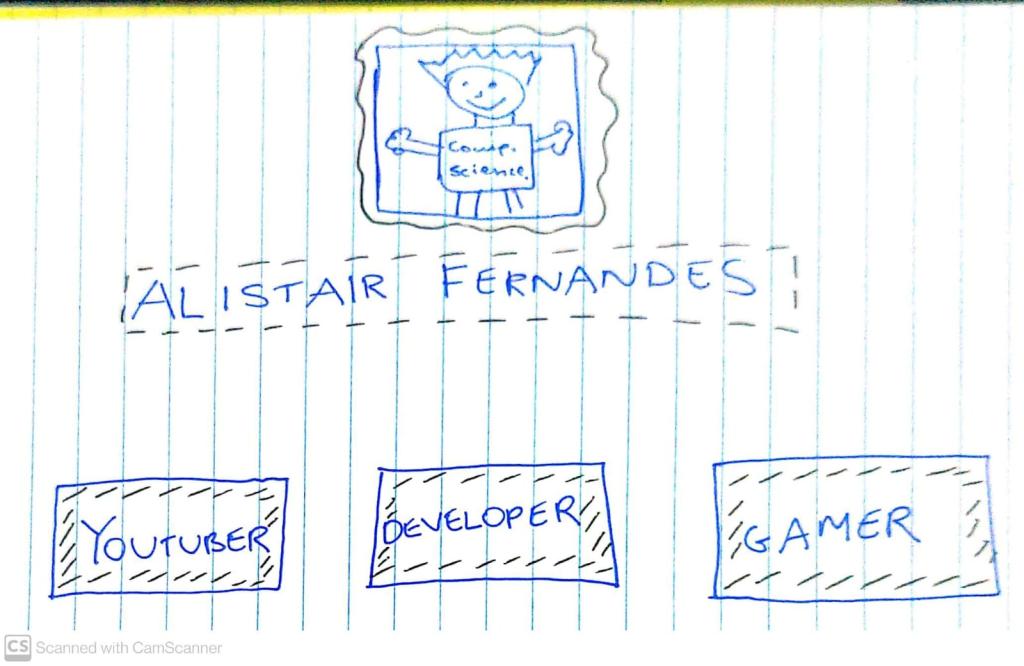 Comp.
science.
ALISTAIR FERNANDES
YOUTUBER
DEVELOPER
GAMER
CS Scanned with CamScanner